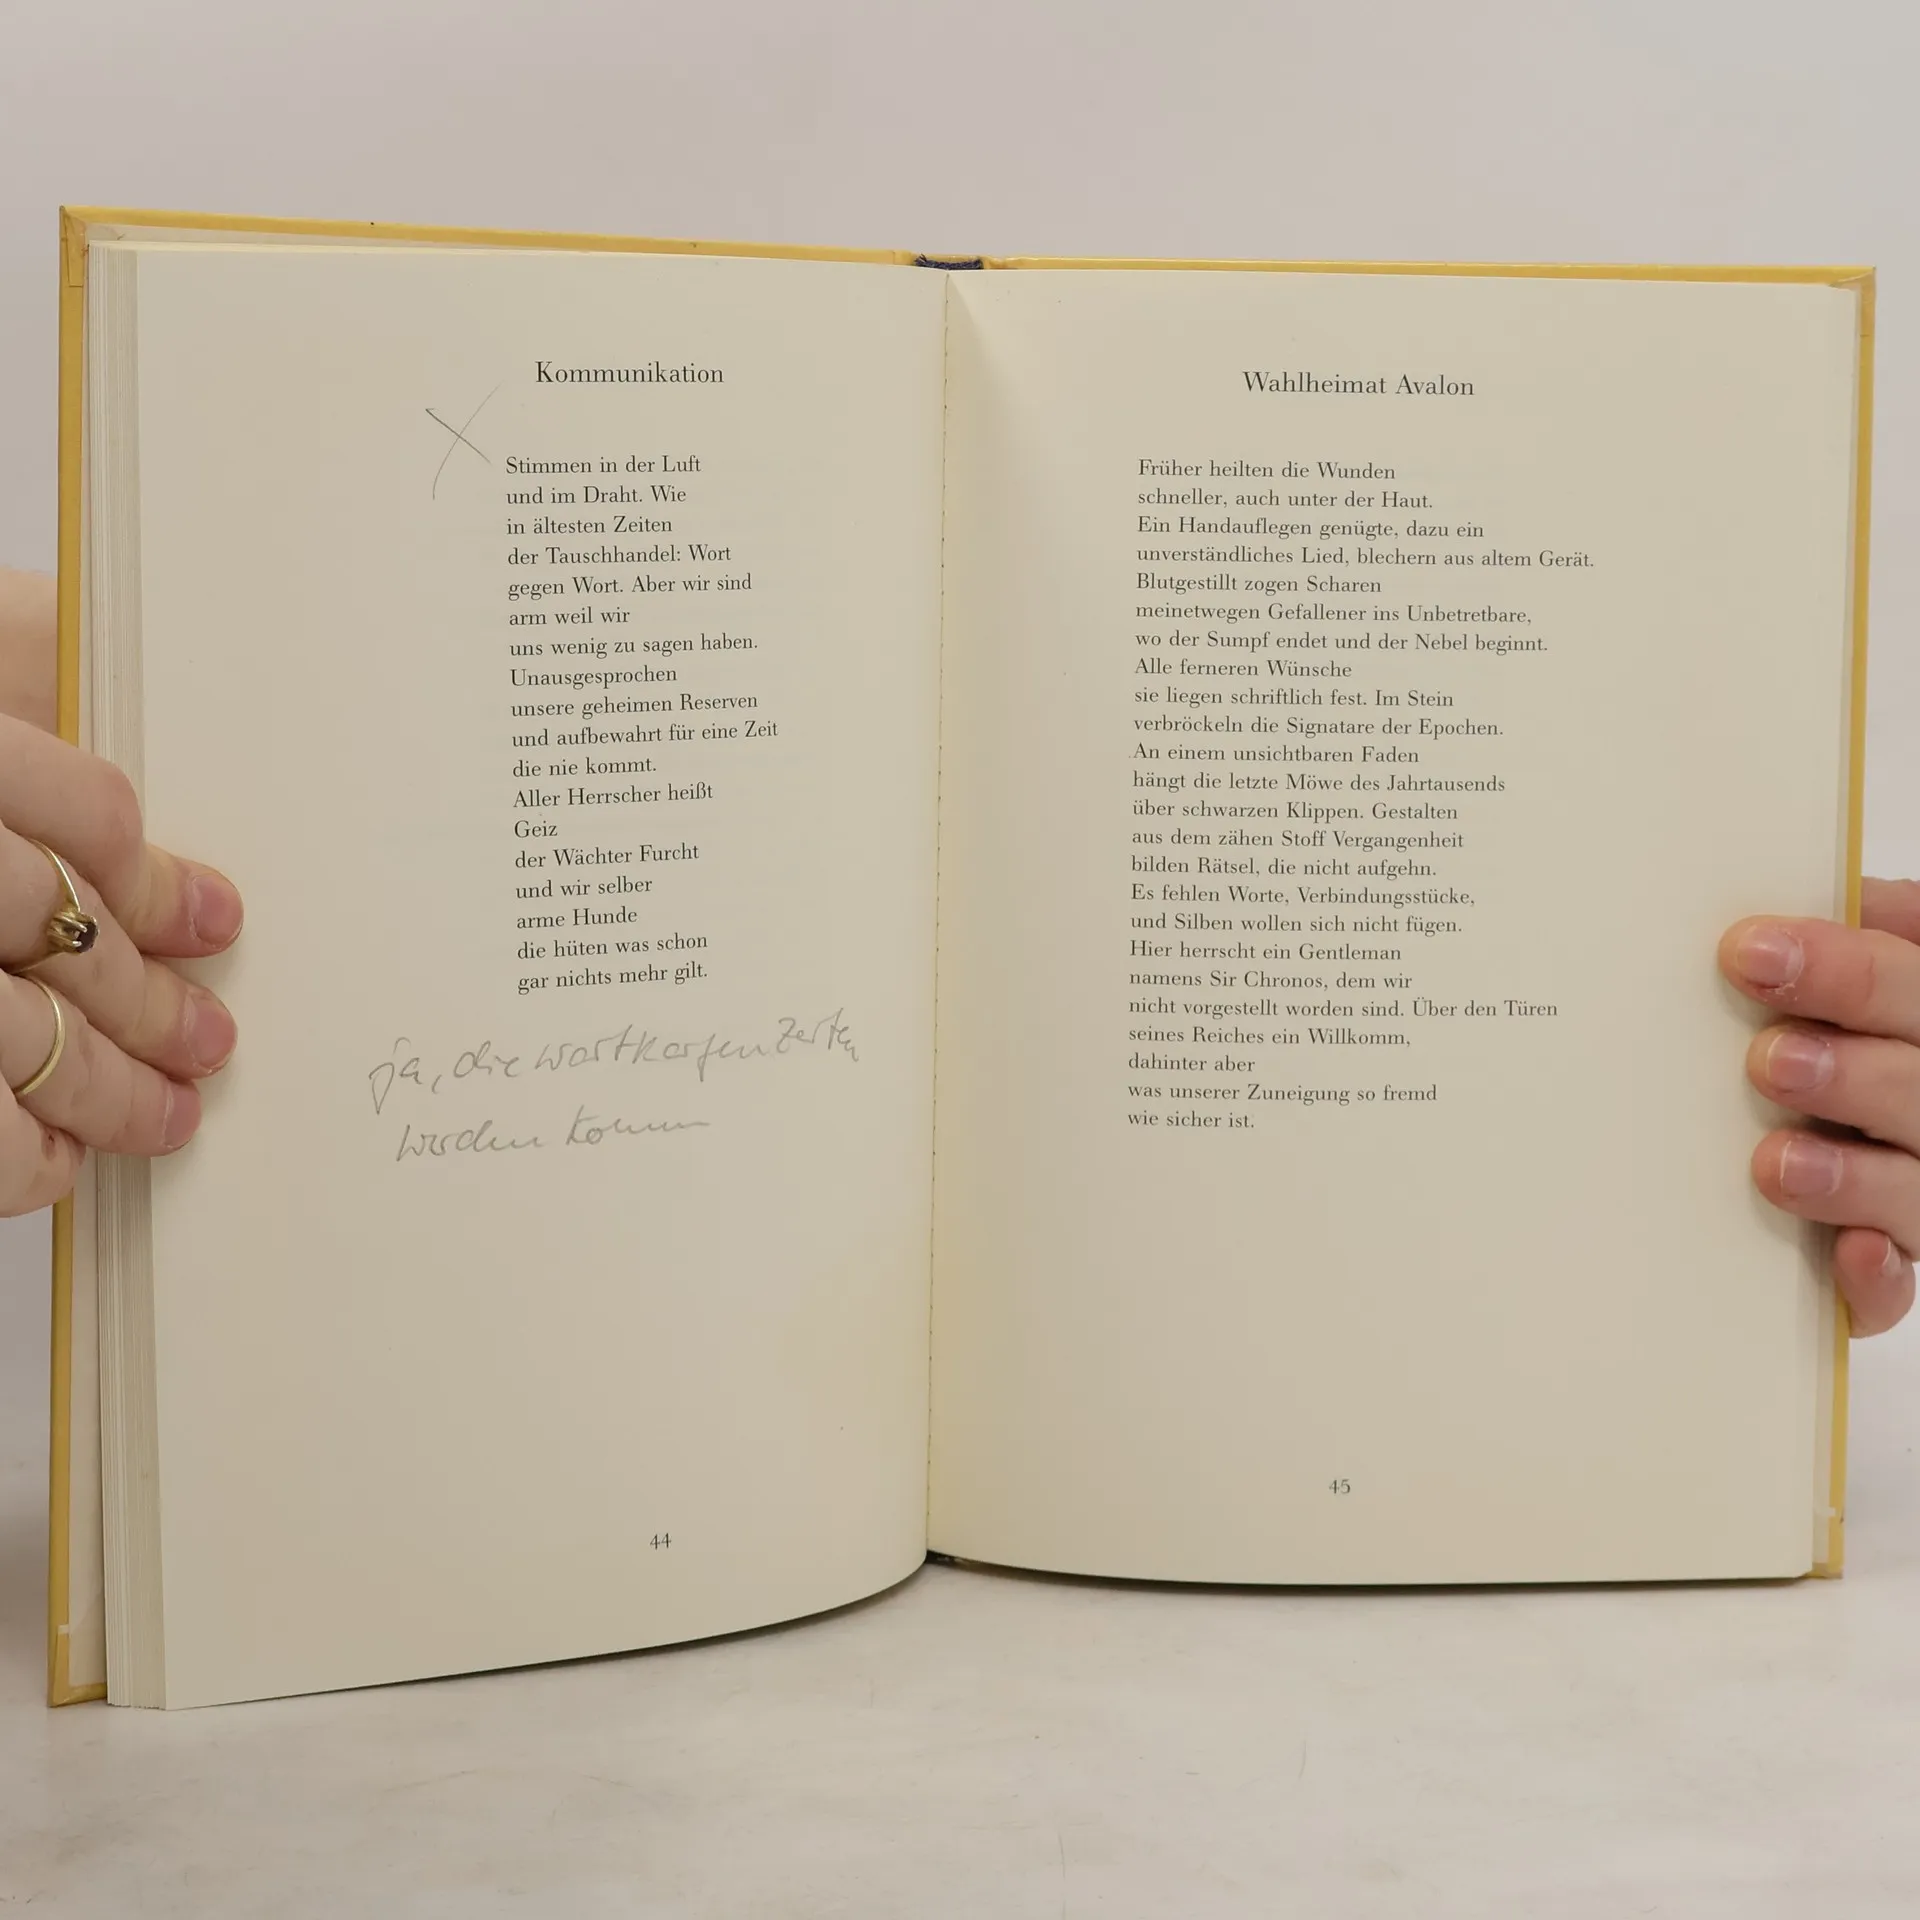 Kommunikation
Stimmen in der Luft
und im Draht. Wie
in ältesten Zeiten
der Tauschhandel: Wort
gegen Wort. Aber wir sind
arm weil wir
uns wenig zu sagen haben.
Unausgesprochen
unsere geheimen Reserven
und aufbewahrt für eine Zeit
die nie kommt.
Aller Herrscher heißt
Geiz
der Wächter Furcht
und wir selber
arme Hunde
die hüten was schon
gar nichts mehr gilt.
ja, die wortkargen Zeiten
werden kommen
44
Wahlheimat Avalon
Früher heilten die Wunden
schneller, auch unter der Haut.
Ein Handauflegen genügte, dazu ein
unverständliches Lied, blechern aus altem Gerät.
Blutgestillt zogen Scharen
meinetwegen Gefallener ins Unbetretbare,
wo der Sumpf endet und der Nebel beginnt.
Alle ferneren Wünsche
sie liegen schriftlich fest. Im Stein
verbröckeln die Signatare der Epochen.
An einem unsichtbaren Faden
hängt die letzte Möwe des Jahrtausends
über schwarzen Klippen. Gestalten
aus dem zähen Stoff Vergangenheit
bilden Rätsel, die nicht aufgehn.
Es fehlen Worte, Verbindungsstücke,
und Silben wollen sich nicht fügen.
Hier herrscht ein Gentleman
namens Sir Chronos, dem wir
nicht vorgestellt worden sind. Über den Türen
seines Reiches ein Willkomm,
dahinter aber
was unserer Zuneigung so fremd
wie sicher ist.
45